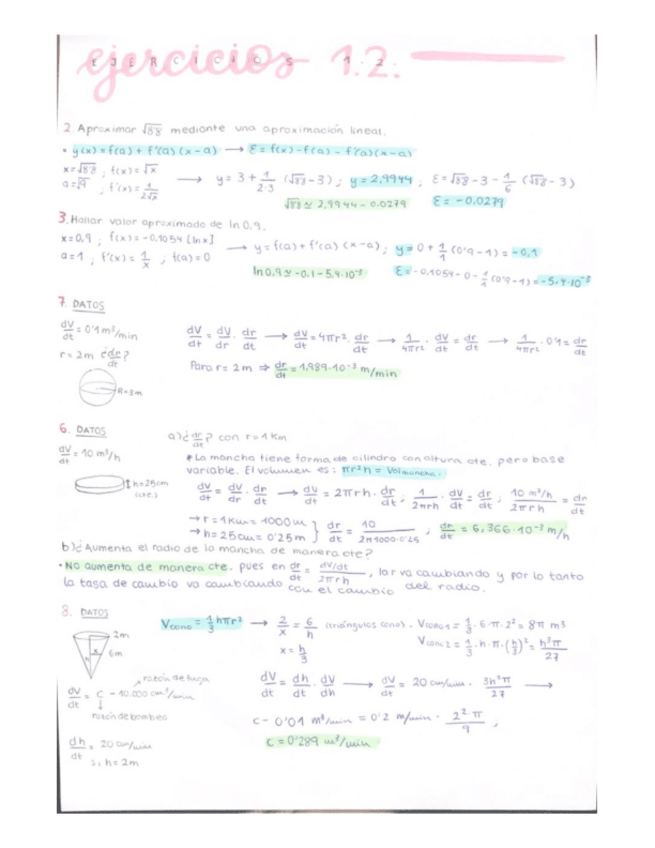 ejercicios 1.2.
EJERCICIOS 1.2.
2. Aproximar √88 mediante una aproximación lineal.
• y(x) = f(a) + f'(a) (x-a) → Ɛ = f(x) - f(a) - f'(a)(x-a)
x = √88 ; f(x) = √x
a = √9 ; f'(x) = 1/2√x → y = 3 + 1/2·3 (√88-3) ; y = 2,9944 ; Ɛ = √88 - 3 - 1/6 (√88 - 3)
√88 ≃ 2,9944 - 0.0279 Ɛ = -0.0279
3. Hallar valor aproximado de ln 0,9.
x = 0,9 ; f(x) = -0,1054 [ln x] → y = f(a) + f'(a) (x-a) ; y = 0 + 1/1 (0'9 - 1) = -0,1
a = 1 ; f'(x) = 1/x ; f(a) = 0
ln 0,9 ≃ -0.1 - 5,4·10⁻³ Ɛ = -0,1054 - 0 - 1/1 (0'9 - 1) = -5,4·10⁻³
7. DATOS
dV/dt = 0'1 m³/min
r = 2m ¿dr/dt?
R=3m
dV/dt = dV/dr · dr/dt → dV/dt = 4πr² · dr/dt → 1/4πr² · dV/dt = dr/dt → 1/4πr² · 0'1 = dr/dt
Para r = 2m ⇒ dr/dt = 1,989·10⁻³ m/min
6. DATOS
dV/dt = 10 m³/h
h=25cm
(cte.)
a) ¿dr/dt? con r = 1 km
* La mancha tiene forma de cilindro con altura cte. pero base
variable. El volumen es: πr²h = Vol mancha.
dV/dt = dV/dr · dr/dt → dV/dt = 2πrh · dr/dt ; 1/2πrh · dV/dt = dr/dt ; 10 m³/h / 2πrh = dr/dt
→ r = 1km = 1000m
→ h = 25cm = 0'25m } dr/dt = 10/2π1000·0.25 ; dr/dt = 6,366·10⁻³ m/h
b) ¿Aumenta el radio de la mancha de manera cte?
• No aumenta de manera cte. pues en dr/dt = dV/dt / 2πrh , la r va cambiando y por lo tanto
la tasa de cambio va cambiando con el cambio del radio.
8. DATOS
2m
6m
x
h
Vcono = 1/3 hπr² → 2/x = 6/h (triángulos cono). Vcono1 = 1/3 · 6 · π · 2² = 8π m³
x = h/3 Vcono2 = 1/3 · h · π · (h/3)² = h³π/27
razón de fuga
dV/dt = C - 10.000 cm³/min
razón de bombeo
dV/dt = dh/dt · dV/dh → dV/dt = 20 cm/min · 3h²π/27 →
C - 0'01 m³/min = 0'2 m/min · 2²·π/9 ,
C = 0'289 m³/min
dh/dt = 20 cm/min
si h = 2m